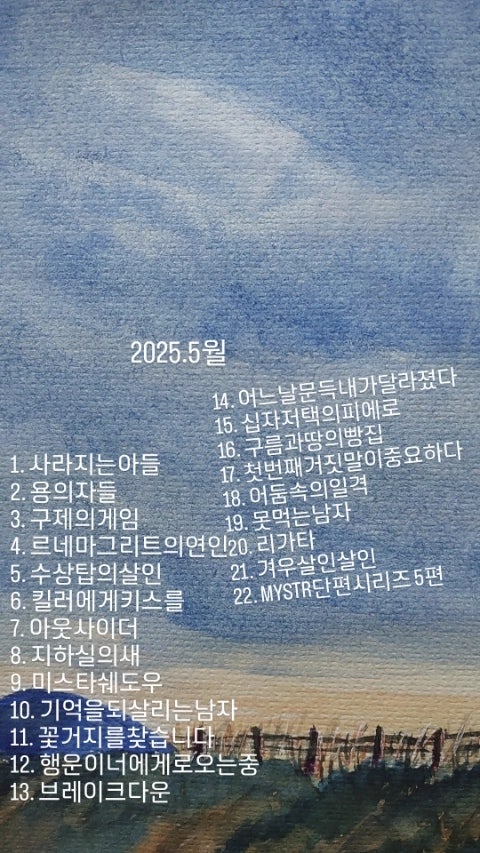 2025.5월
1. 사라지는아들
2. 용의자들
3. 구제의게임
4. 르네마그리트의연인
5. 수상탑의살인
6. 킬러에게키스를
7. 아웃사이더
8. 지하실의새
9. 미스타쉐도우
10. 기억을되살리는남자
11. 꽃거지를찾습니다
12. 행운이너에게로오는중
13. 브레이크다운
14. 어느날문득내가달라졌다
15. 십자저택의피에로
16. 구름과땅의빵집
17. 첫번째거짓말이중요하다
18. 어둠속의일격
19. 못먹는남자
20. 리가타
21. 겨우살인살인
22. MYSTR단편시리즈 5편